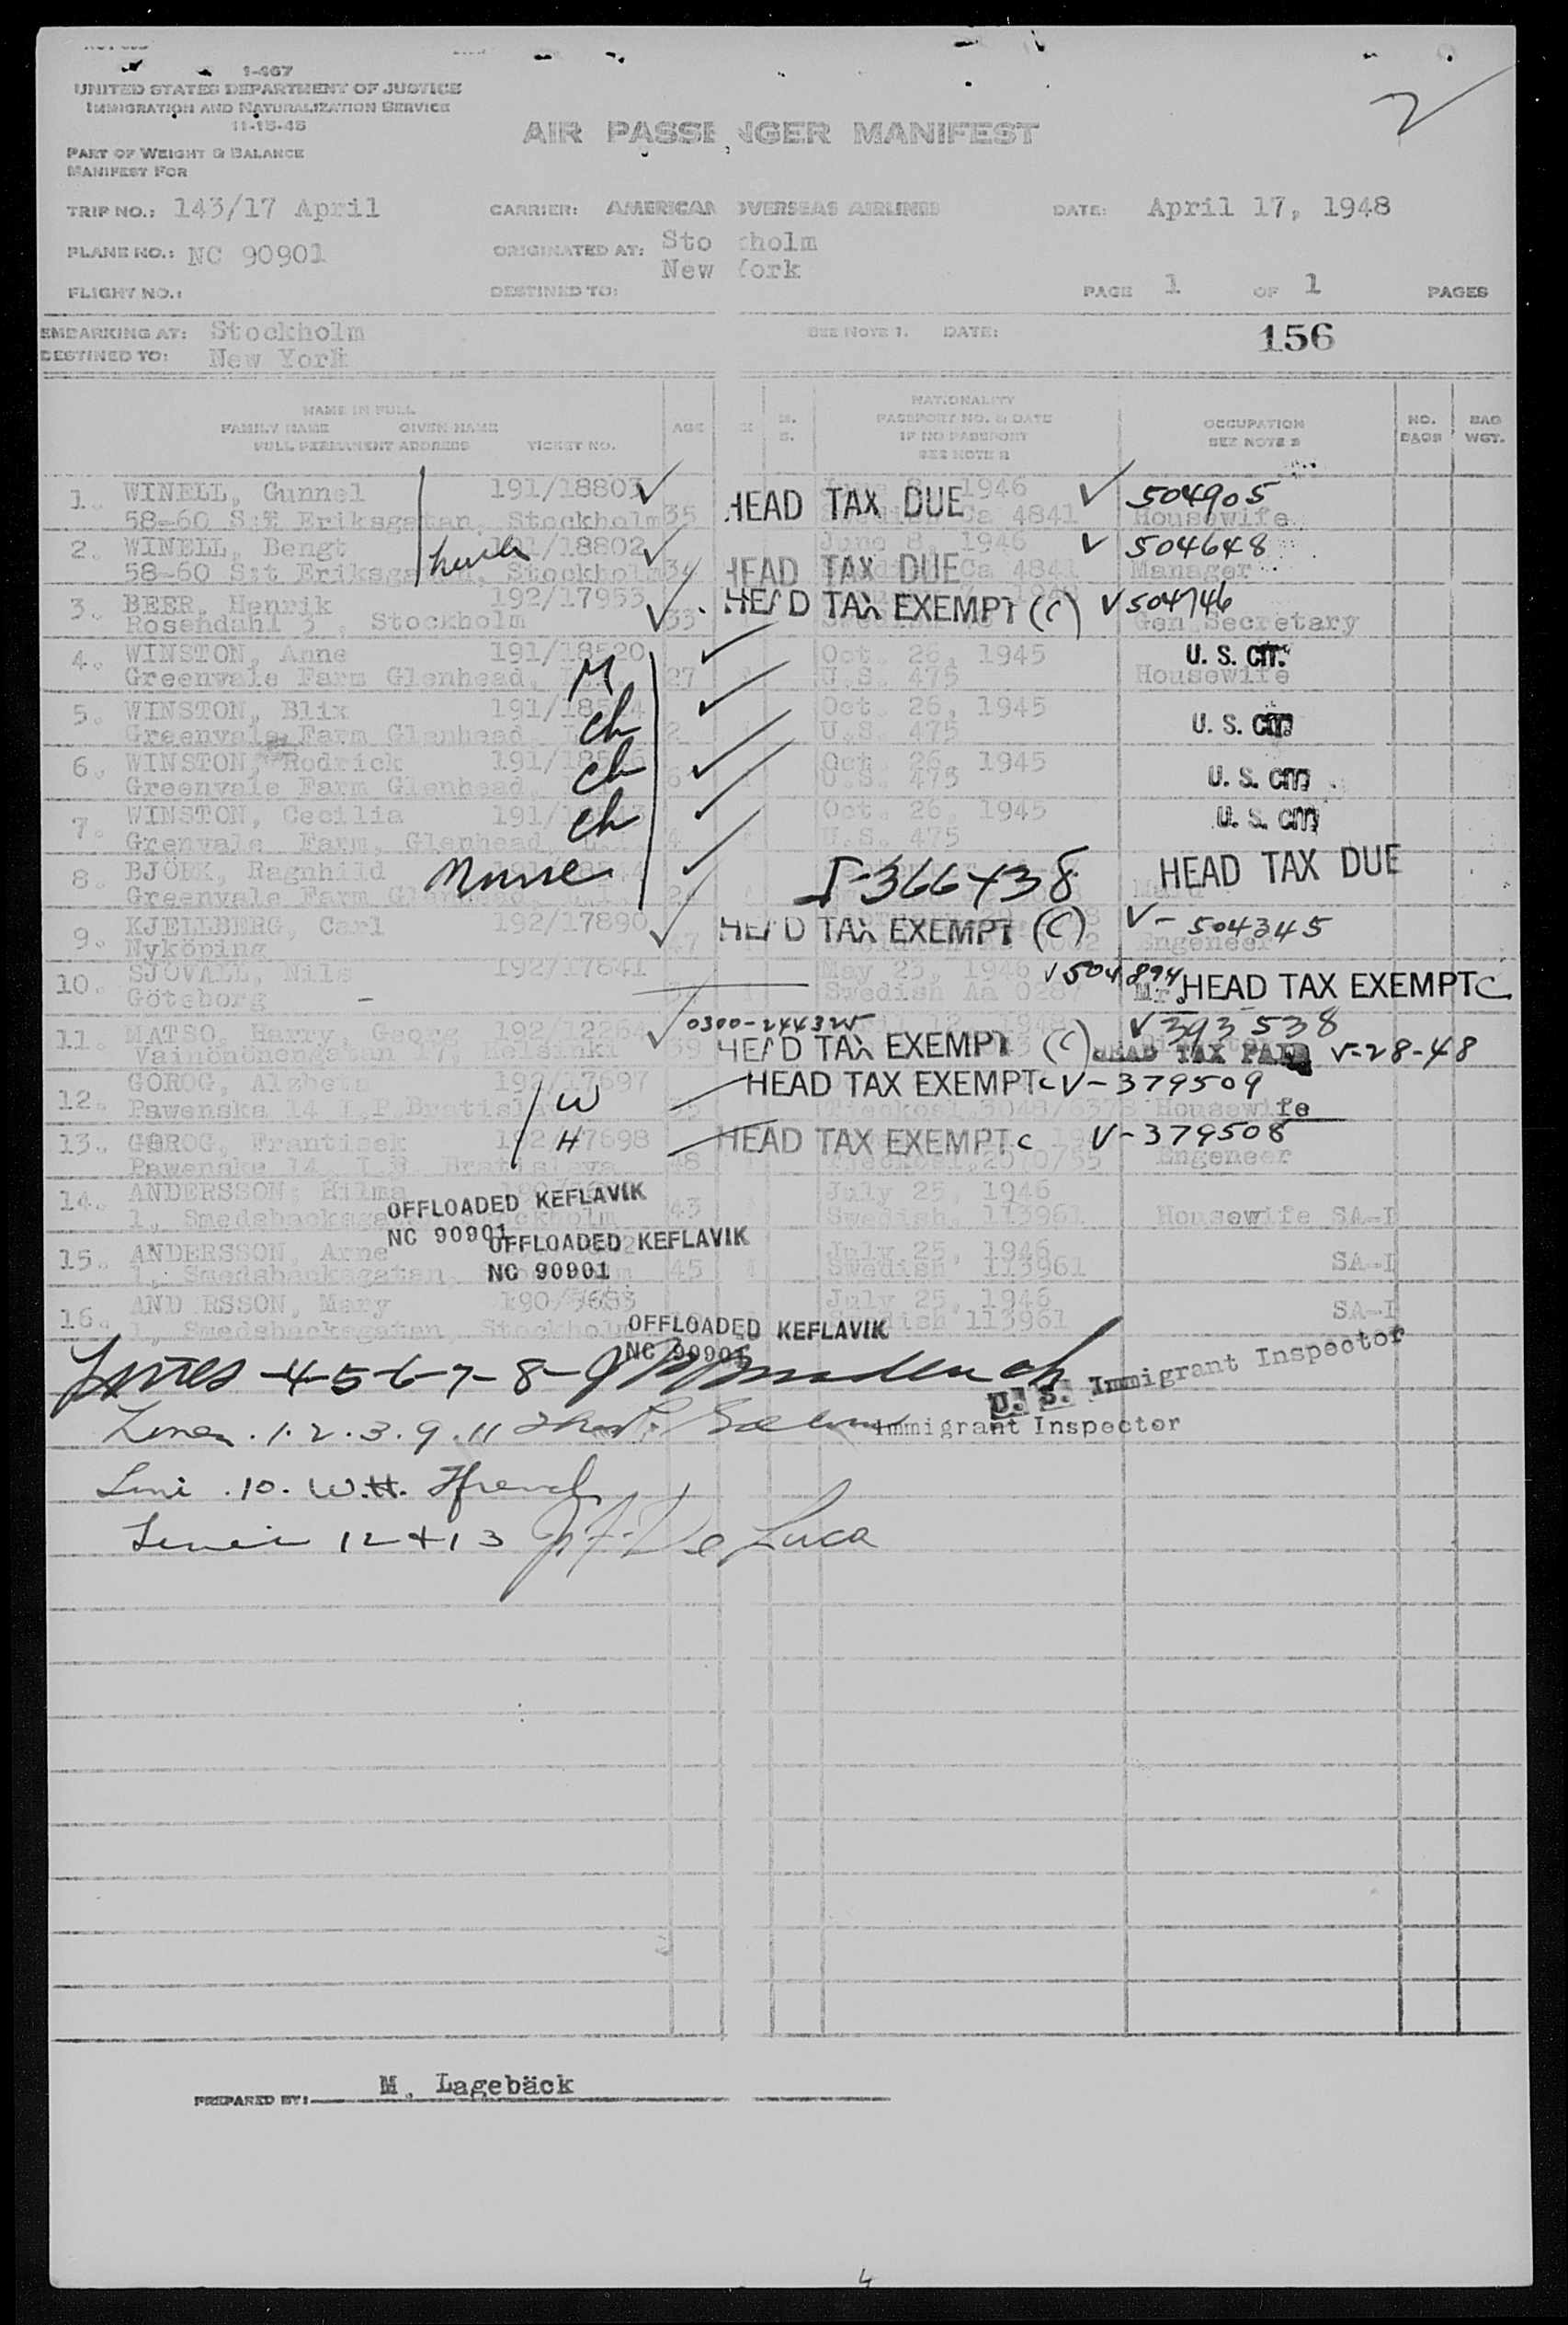 1-467
UNITED STATES DEPARTMENT OF JUSTICE
IMMIGRATION AND NATURALIZATION SERVICE
11-15-45
AIR PASSENGER MANIFEST
PART OF WEIGHT & BALANCE
MANIFEST FOR
TRIP NO.: 143/17 April CARRIER: AMERICAN OVERSEAS AIRLINES DATE: April 17, 1948
PLANE NO.: NC 90901 ORIGINATED AT: Stockholm
New York
FLIGHT NO.: DESTINED TO: PAGE 1 OF 1 PAGES
EMBARKING AT: Stockholm SEE NOTE 1. DATE: 156
DESTINED TO: New York
NAME IN FULL
FAMILY NAME GIVEN NAME
FULL PERMANENT ADDRESS TICKET NO. AGE
NATIONALITY
PASSPORT NO. & DATE
IF NO PASSPORT
SEE NOTE 2
OCCUPATION
SEE NOTE 2
NO. BAGS
BAG WGT.
1. WINELL, Gunnel 191/18803 1946 504905
58-60 S:t Eriksgatan, Stockholm 35 HEAD TAX DUE Ca 4841 Housewife
2. WINELL, Bengt 191/18802 June 8, 1946 504648
58-60 S:t Eriksgatan, Stockholm HEAD TAX DUE Ca 4841 Manager
3. BEER, Henrik 192/17953 HEAD TAX EXEMPT (C) V504746
Rosendahl 3, Stockholm 33 Gen Secretary
4. WINSTON, Anne 191/18520 Oct. 26, 1945 U. S. CIT.
Greenvale Farm Glenhead, M 27 U.S. 475 Housewife
5. WINSTON, Blix Oct. 26, 1945
Greenvale Farm Glenhead ch 2 U.S. 475 U. S. CIT
6. WINSTON, Rodrick Oct. 26, 1945
Greenvale Farm Glenhead ch 6 U.S. 475 U. S. CIT
7. WINSTON, Cecilia ch Oct. 26, 1945 U. S. CIT
Grenvale Farm, Glenhead, 4 U.S. 475
8. BJÖRK, Ragnhild Nurse I-366438 HEAD TAX DUE
Greenvale Farm
9. KJELLBERG, Carl 192/17890 HEAD TAX EXEMPT (C) V-504345
Nyköping 47 Engeneer
10. SJÖVALL, Nils 192/17641 May 23, 1946 V504894
Göteborg Swedish Aa 0287 Mr. HEAD TAX EXEMPT C
11. MATSO, Harry, Georg 0300-244325 V393538
Helsinki 39 HEAD TAX EXEMPT (C) HEAD TAX PAID V-28-48
12. GOROG, Alzbeta 192/17697 W HEAD TAX EXEMPT C V-379509
Pawenska 14 Bratislava Housewife
13. GOROG, Frantisek 192/17698 H HEAD TAX EXEMPT C V-379508
Pawenska 14, Bratislava 48 Engeneer
14. ANDERSSON, Hilma July 25, 1946
OFFLOADED KEFLAVIK
NC 90901
43 Swedish, 113961 Housewife SA-I
15. ANDERSSON, Arne July 25, 1946
OFFLOADED KEFLAVIK
NC 90901
45 Swedish 113961 SA-I
16. ANDERSSON, Mary 190/5653 July 25, 1946
1, Smedsbacksgatan, Stockholm Swedish 113961 SA-I
OFFLOADED KEFLAVIK
NC 90901
Lines 4-5-6-7-8-
U. S. Immigrant Inspector
Lines . 1. 2. 3. 9. 11 Immigrant Inspector
Line . 10. W.H. French
Lines 12 + 13 De Luca
PREPARED BY: M. Lagebäck
4